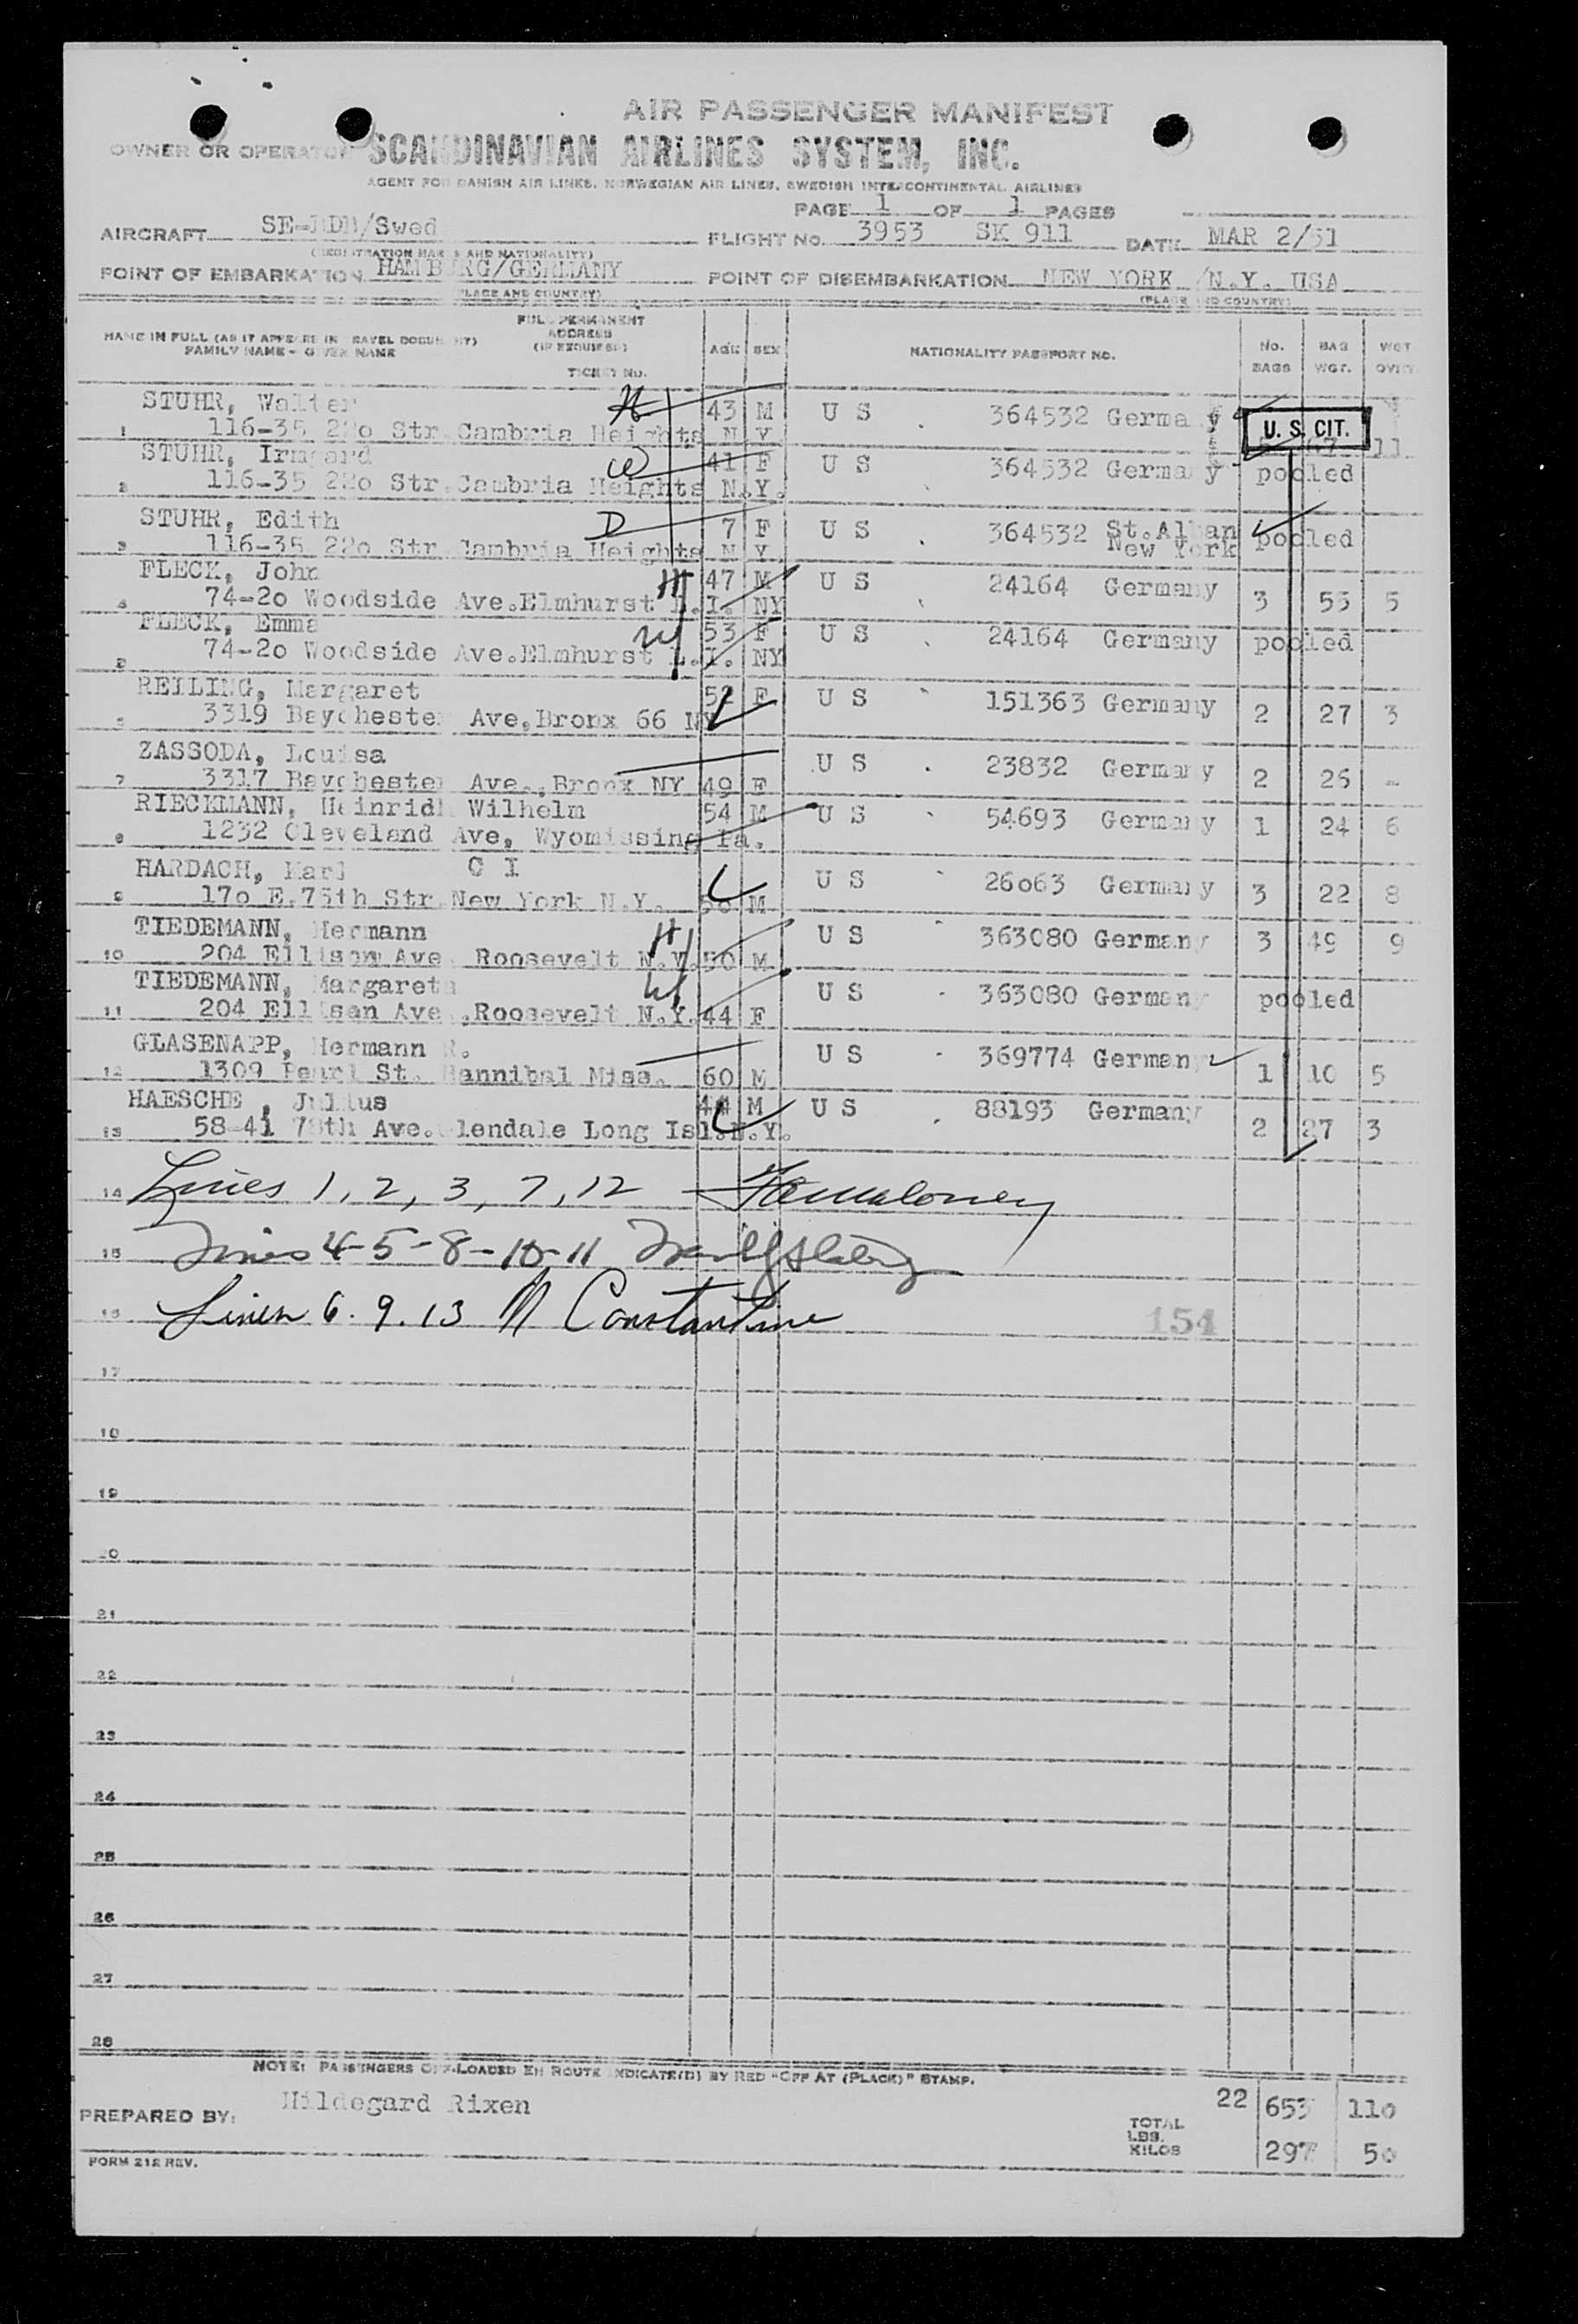 AIR PASSENGER MANIFEST
OWNER OR OPERATOR SCANDINAVIAN AIRLINES SYSTEM, INC.
AGENT FOR DANISH AIR LINES, NORWEGIAN AIR LINES, SWEDISH INTERCONTINENTAL AIRLINES
PAGE 1 OF 1 PAGES
AIRCRAFT /Swed FLIGHT No. 3953 SK 911 DATE MAR 2/51
(REGISTRATION MARKS AND NATIONALITY)
POINT OF EMBARKATION HAMBURG/GERMANY POINT OF DISEMBARKATION NEW YORK /N.Y. USA
(PLACE AND COUNTRY) (PLACE AND COUNTRY)
NAME IN FULL (AS IT APPEARS IN TRAVEL DOCUMENT) FAMILY NAME - GIVEN NAME FULL PERMANENT ADDRESS (IF REQUIRED) TICKET No. AGE SEX NATIONALITY PASSPORT NO. No. BAGS BAG WGT. WGT OVER
STUHR, Walter H 43 M U S 364532 Germany U. S. CIT.
1 116-35 22o Str. Cambria Heights N Y 67 11
STUHR, Irmgard W 41 F U S 364532 Germany pooled
2 116-35 22o Str. Cambria Heights N.Y.
STUHR, Edith D 7 F U S 364532 St.Alban New York pooled
3 116-35 22o Str. Cambria Heights N Y
FLECK, John H 47 M U S 24164 Germany 3 55 5
4 74-2o Woodside Ave.Elmhurst L.I. NY
FLECK, Emma W 53 F U S 24164 Germany pooled
5 74-2o Woodside Ave.Elmhurst L.I. NY
REILING, Margaret 52 F U S 151363 Germany 2 27 3
6 3319 Baychester Ave,Bronx 66 NY
ZASSODA, Louisa U S 23832 Germany 2 26 -
7 3317 Baychester Ave.,Bronx NY 49 F
RIECKMANN, Heinrich Wilhelm 54 M U S 54693 Germany 1 24 6
8 1232 Cleveland Ave, Wyomissing Pa.
HARDACH, Karl C I U S 26o63 Germany 3 22 8
9 17o E.75th Str New York N.Y. M
TIEDEMANN, Hermann H U S 363080 Germany 3 49 9
10 204 Ellison Ave. Roosevelt N.Y. 50 M
TIEDEMANN, Margareta W U S 363080 Germany pooled
11 204 Ellison Ave.,Roosevelt N.Y. 44 F
GLASENAPP, Hermann R. U S 369774 Germany 1 10 5
12 1309 Pearl St. Hannibal Miss. 60 M
HAESCHE , Julius 44 M U S 88193 Germany 2 27 3
13 58-41 78th Ave.Glendale Long Isl.N.Y.
14 Lines 1, 2, 3, 7, 12
15 Lines 4-5-8-10-11
16 Lines 6. 9. 13 N Constantine 154
17
18
19
20
21
22
23
24
25
26
27
28
NOTE: PASSENGERS OFF-LOADED EN ROUTE INDICATE(D) BY RED "OFF AT (PLACE)" STAMP.
PREPARED BY: Hildegard Rixen
TOTAL 22
LBS. 653 11o
KILOS 297 5o
FORM 212 REV.